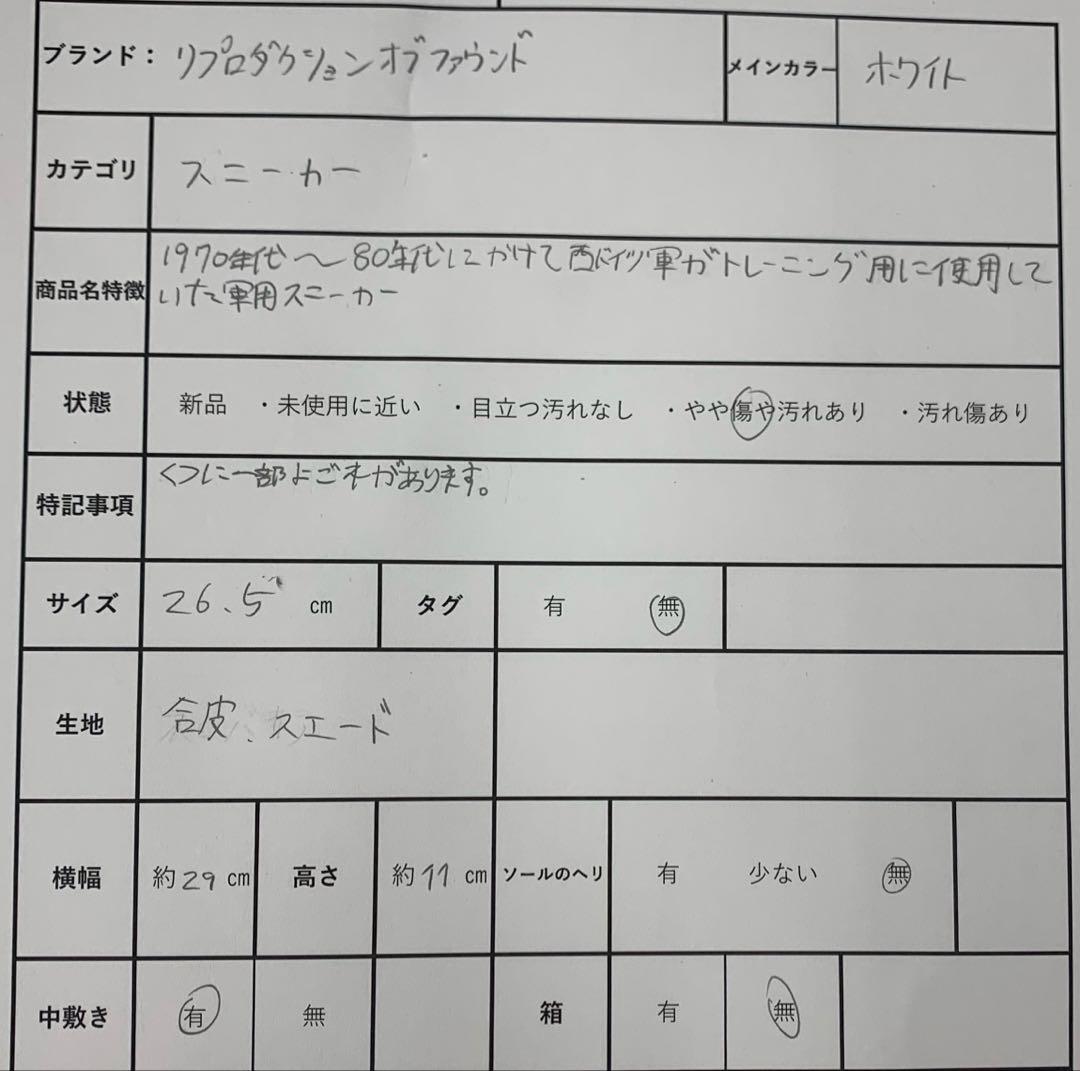 ブランド： リプロダクションオブファウンド メインカラー ホワイト
カテゴリ スニーカー
商品名特徴 1970年代〜80年代にかけて西ドイツ軍がトレーニング用に使用して
いた軍用スニーカー
状態 新品 ・未使用に近い ・目立つ汚れなし ・やや傷や汚れあり ・汚れ傷あり
特記事項 くつに一部よごれがあります。
サイズ 26.5 cm タグ 有 無
生地 合皮、スエード
横幅 約29cm 高さ 約11cm ソールのヘリ 有 少ない 無
中敷き 有 無 箱 有 無